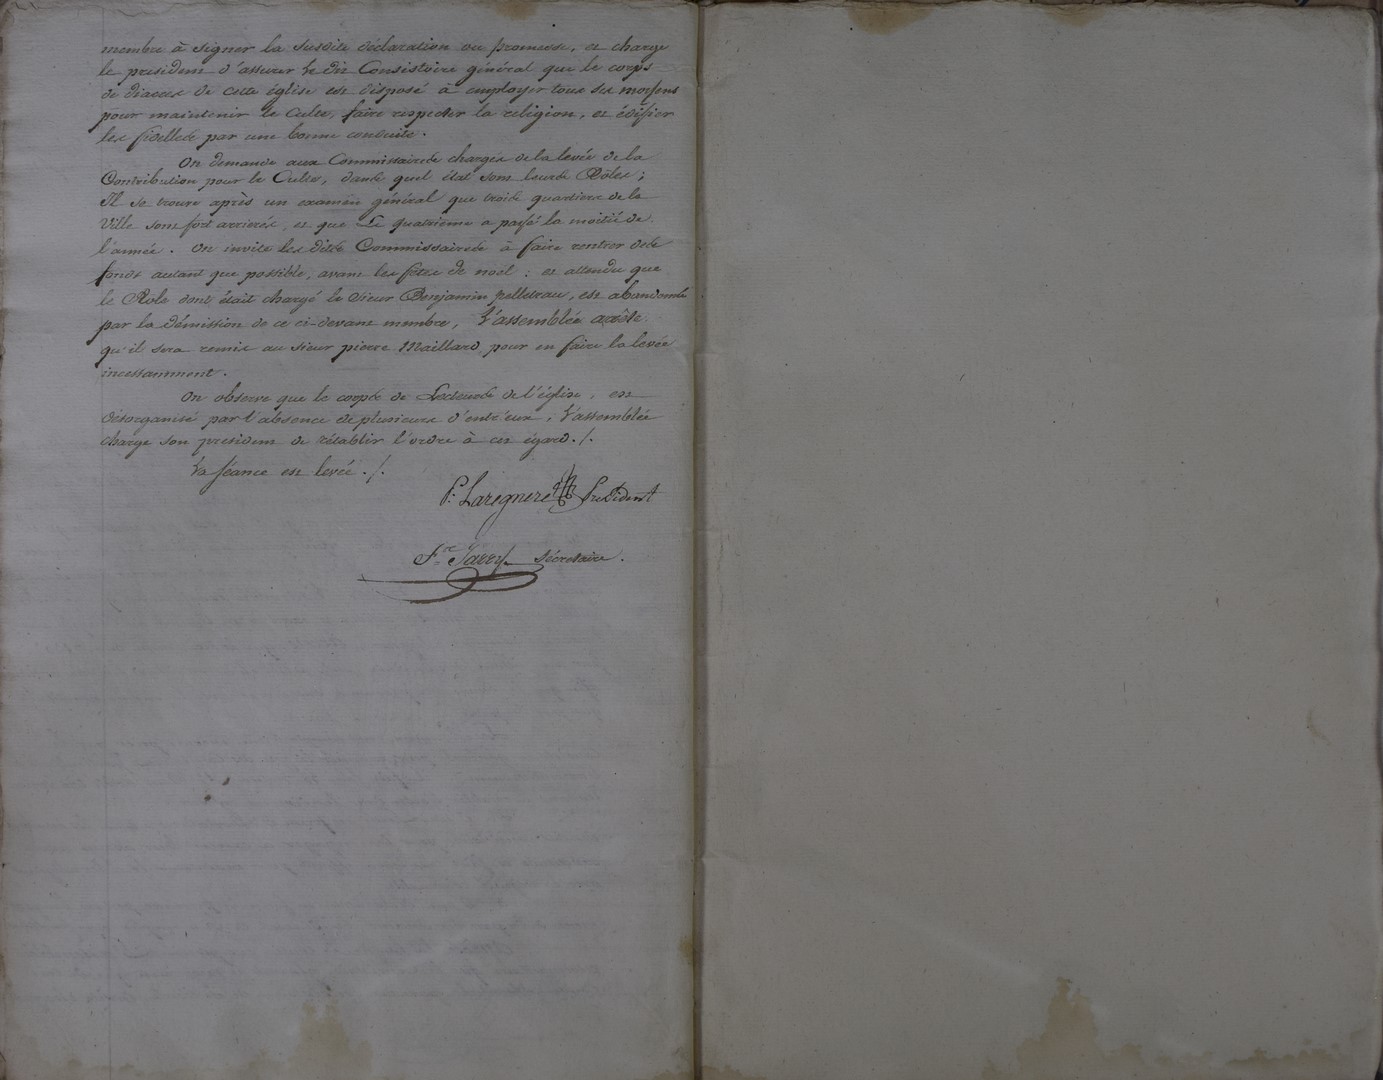 membre à signer la susdite déclaration ou promesse, et charge
le president d'assurer le dit Consistoire général que le corps
de diacres de cette église est disposé à employer tous ses moyens
pour maintenir le Culte, faire respecter la religion, et édifier
les fidelles par une bonne conduite.
On demande aux Commissaires chargés de la levée de la
Contribution pour le Culte, dans quel état sont leurs Rôles;
Il se trouve après un examen général que trois quartiers de la
Ville sont fort arrierés, et que Le quatrieme a passé la moitié de
l'année. On invite les dits Commissaires à faire rentrer des
fonds autant que possible, avant les fêtes de noël : et attendu que
le Role dont était chargé le sieur Benjamin pelletrau, est abandonné
par la démission de ce ci-devant membre, l'assemblée arrête
qu'il sera remis au sieur pierre Maillard, pour en faire la levée
incessamment.
On observe que le corps de Lecteurs de l'église, est
désorganisé par l'absence de plusieurs d'entr'eux, l'assemblée
charge son president de rétablir l'ordre à cet égard./.
La séance est levée./.
P: President
Fs Jarry Sécretaire.